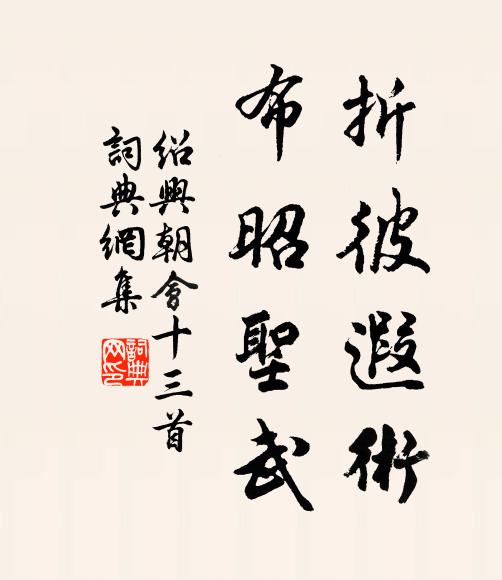 折彼遐衝
布昭聖武
紹興朝會十三首
詞典網集
詞典網印